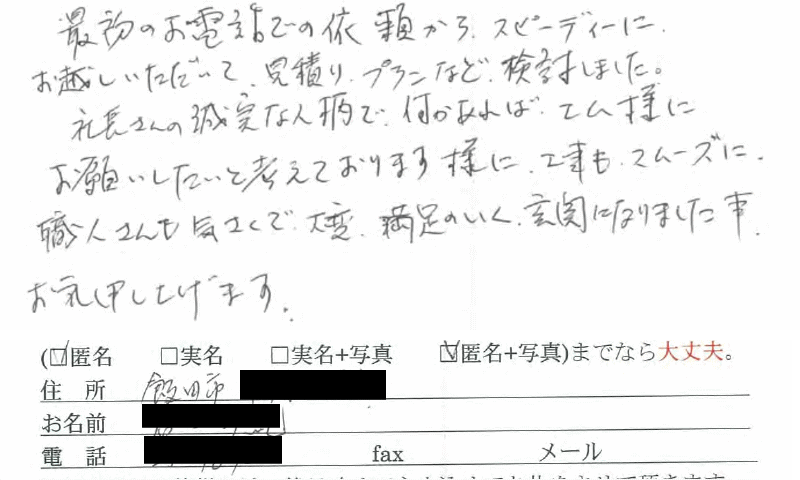 最初のお電話での依頼から、スピーディーに、
お越しいただいて、見積り、プランなど、検討しました。
社長さんの誠実な人柄で、何かあれば、エム様に
お願いしたいと考えております様に、工事も、スムーズに、
職人さんも気さくで、大変、満足のいく、玄関になりました事、
お礼申し上げます。
(☑匿名 □実名 □実名+写真 ☑匿名+写真)までなら大丈夫。
住 所 飯田市
お名前
電 話 fax メール